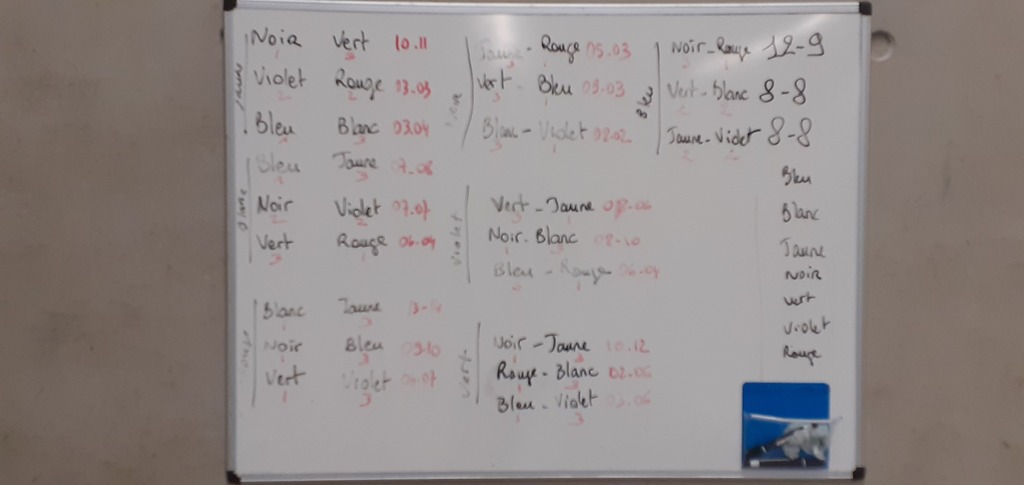 Noir Vert 10.11
Violet Rouge 03.03
Bleu Blanc 03.04
Bleu Jaune 07.08
Noir Violet 07.07
Vert Rouge 06.04
Blanc
Blanc Jaune
Noir Bleu 09.10
Vert Violet
Jaune - Rouge 05.03
Vert - Bleu 09.03
Blanc - Violet 02.02
Violet
Vert - Jaune
Noir - Blanc 08-10
Bleu - Rouge 06.04
Vert
Noir - Jaune 10.12
Rouge - Blanc 02.06
Bleu - Violet 03.06
Bleu
Noir - Rouge 12-9
Vert - Blanc 8-8
Jaune - Violet 8-8
Bleu
Blanc
Jaune
Noir
Vert
Violet
Rouge